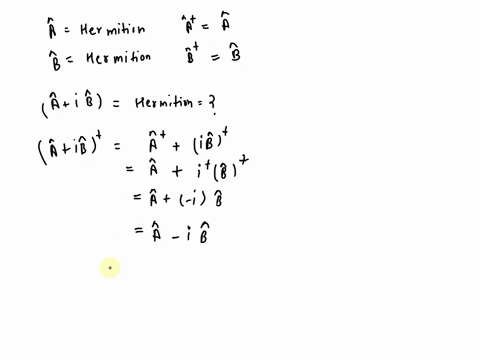 Â = Hermition Â† = Â
B̂ = Hermition B̂† = B̂
(Â + i B̂) = Hermition = ?
(Â + iB̂)† = Â† + (iB̂)†
= Â + i†(B̂)†
= Â + (-i) B̂
= Â - i B̂